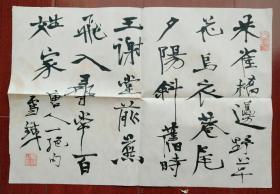 朱雀橋邊野草
花烏衣巷尾
夕陽斜舊時
王謝堂前燕
飛入尋常百
姓家
唐人一絕句